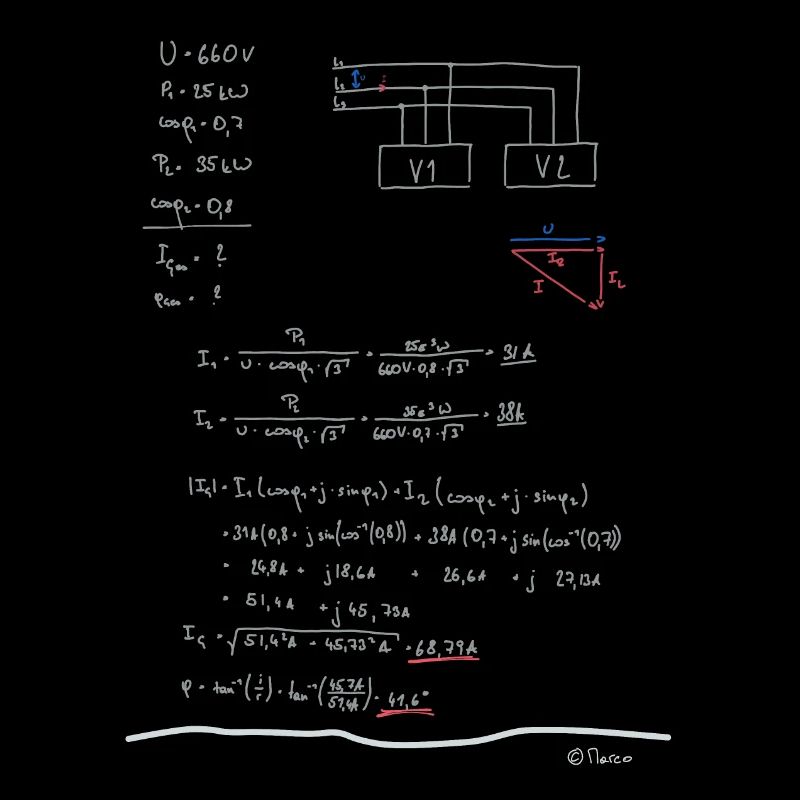 U = 660V
P₁ = 25 kW
cosφ₁ = 0,7
P₂ = 35 kW
cosφ₂ = 0,8
I_Ges = ?
φ_Ges = ?
L₁
L₂
L₃
U
V1
V2
U
I_R
I
I_L
I₁ = P₁ / (U · cosφ₁ · √3) = 25ε³W / (660V · 0,8 · √3) = 31A
I₂ = P₂ / (U · cosφ₂ · √3) = 35ε³W / (660V · 0,7 · √3) = 38A
|I_G| = I₁(cosφ₁ + j · sinφ₁) + I₂(cosφ₂ + j · sinφ₂)
= 31A(0,8 + j sin(cos⁻¹(0,8)) + 38A(0,7 + j sin(cos⁻¹(0,7))
= 24,8A + j18,6A + 26,6A + j 27,13A
= 51,4A + j 45,73A
I_G = √(51,4²A + 45,73²A) = 68,79A
φ = tan⁻¹(i/r) = tan⁻¹(45,7A/51,4A) = 41,6°
© Marco